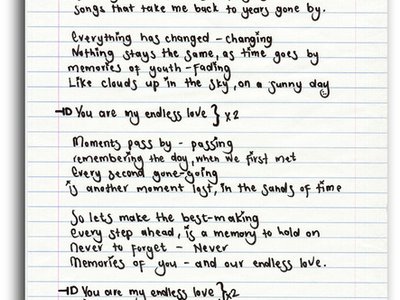 songs that take me back to years gone by.
Everything has changed - changing
Nothing stays the same, as time goes by
memories of youth - fading
Like clouds up in the sky, on a sunny day
You are my endless love } x2
Moments pass by - passing
remembering the day, when we first met
Every second gone - going
is another moment lost, in the sands of time
So lets make the best - making
Every step ahead, is a memory to hold on
Never to forget - Never
Memories of you - and our endless love.
You are my endless love } x2